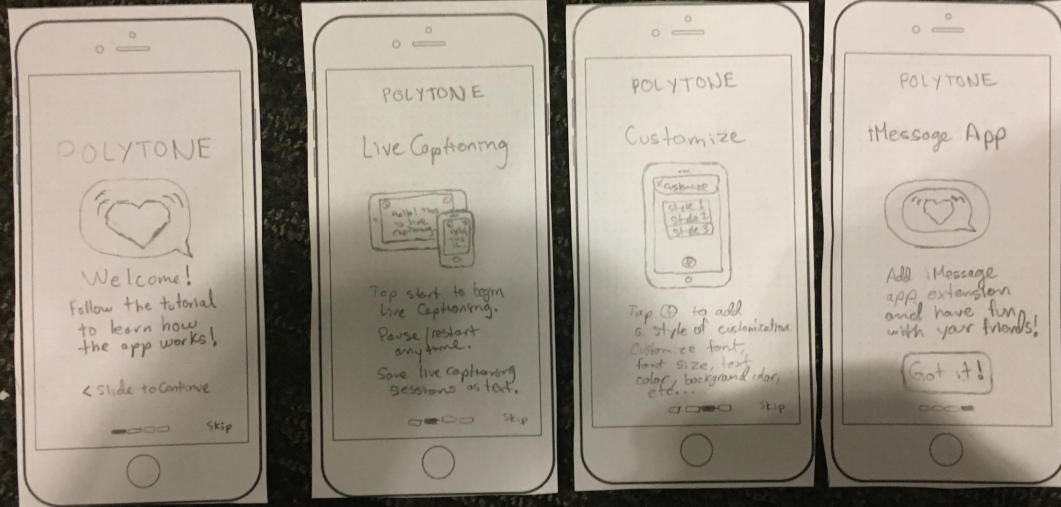 POLYTONE
Welcome!
Follow the tutorial
to learn how
the app works!
< Slide to Continue
Skip
POLYTONE
Live Captioning
Hello! This
is live
captioning.
Hello!
This
is
Tap start to begin
Live Captioning.
Pause/restart
anytime.
Save live captioning
sessions as text.
Skip
POLYTONE
Customize
Customize
Style 1
Style 2
Style 3
Tap + to add
a style of customization.
Customize font,
font size, text
color, background color,
etc...
Skip
POLYTONE
iMessage App
Add iMessage
app extension
and have fun
with your friends!
Got it!